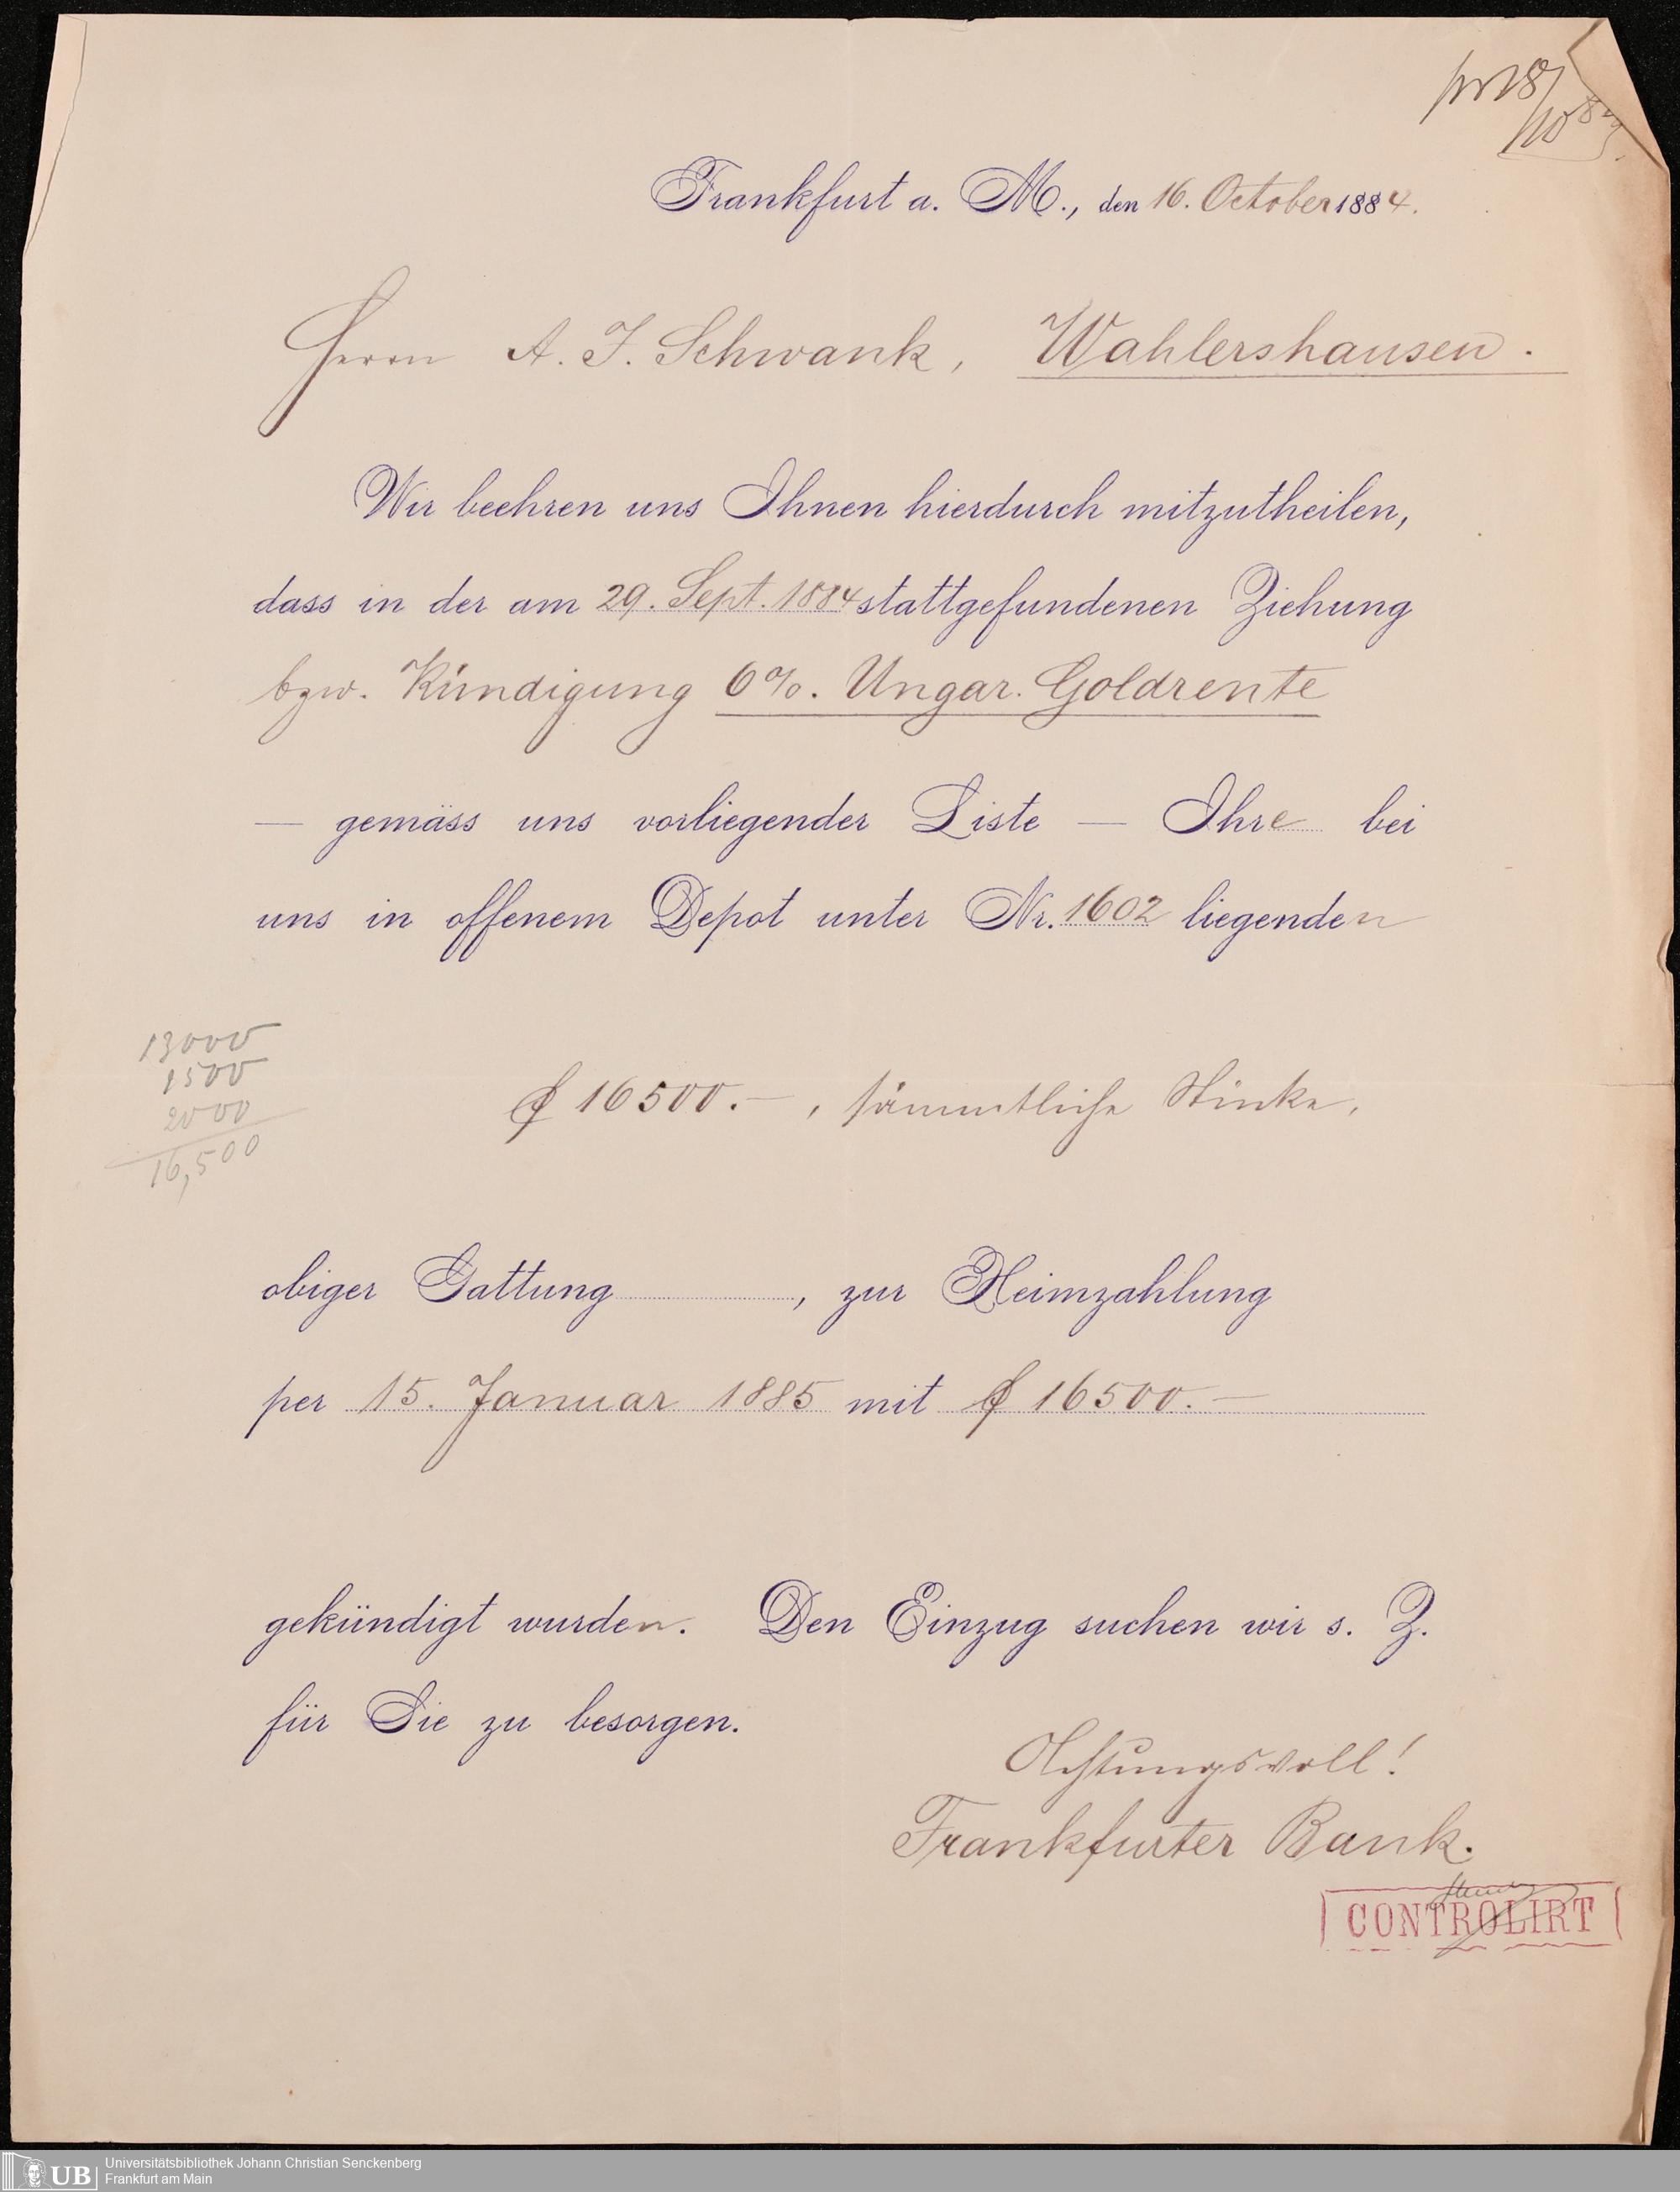 pr 18/10 84.
Frankfurt a. M., den 16. October 1884.
Herrn A. F. Schwank, Wahlershausen.
Wir beehren uns Ihnen hierdurch mitzutheilen,
dass in der am 29. Sept. 1884 stattgefundenen Ziehung
bzw. Kündigung 6%. Ungar. Goldrente
— gemäss uns vorliegender Liste — Ihre bei
uns in offenem Depot unter Nr. 1602 liegenden
13000
1500
2000
16,500
fl 16500.—, sämmtliche Stücke,
obiger Gattung, zur Heimzahlung
per 15. Januar 1885 mit fl 16500.—
gekündigt wurden. Den Einzug suchen wir s. Z.
für Sie zu besorgen.
Achtungsvoll!
Frankfurter Bank.
CONTROLIRT
UB
Universitätsbibliothek Johann Christian Senckenberg
Frankfurt am Main